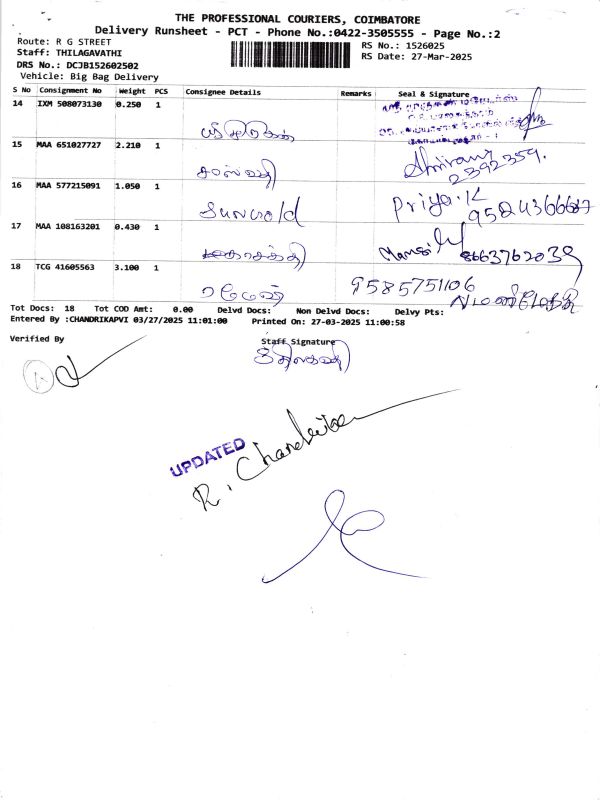 THE PROFESSIONAL COURIERS, COIMBATORE
Delivery Runsheet - PCT - Phone No.:0422-3505555 - Page No.:2
Route: R G STREET
RS No.: 1526025
Staff: THILAGAVATHI
RS Date: 27-Mar-2025
DRS No.: DCJB152602502
Vehicle: Big Bag Delivery
S No Consignment No Weight PCS Consignee Details Remarks Seal & Signature
14 IXM 508073130 0.250 1
15 MAA 651027727 2.210 1
2392359.
16 MAA 577215091 1.050 1
Sunworld Priya.K
17 MAA 108163201 0.430 1
Mansi
18 TCG 41605563 3.100 1
ரமேஷ் 9585751106
Tot Docs: 18 Tot COD Amt: 0.00 Delvd Docs: Non Delvd Docs: Delvy Pts:
Entered By :CHANDRIKAPVI 03/27/2025 11:01:00 Printed On: 27-03-2025 11:00:58
Verified By Staff Signature
திலகவதி
UPDATED
R. Chandrika